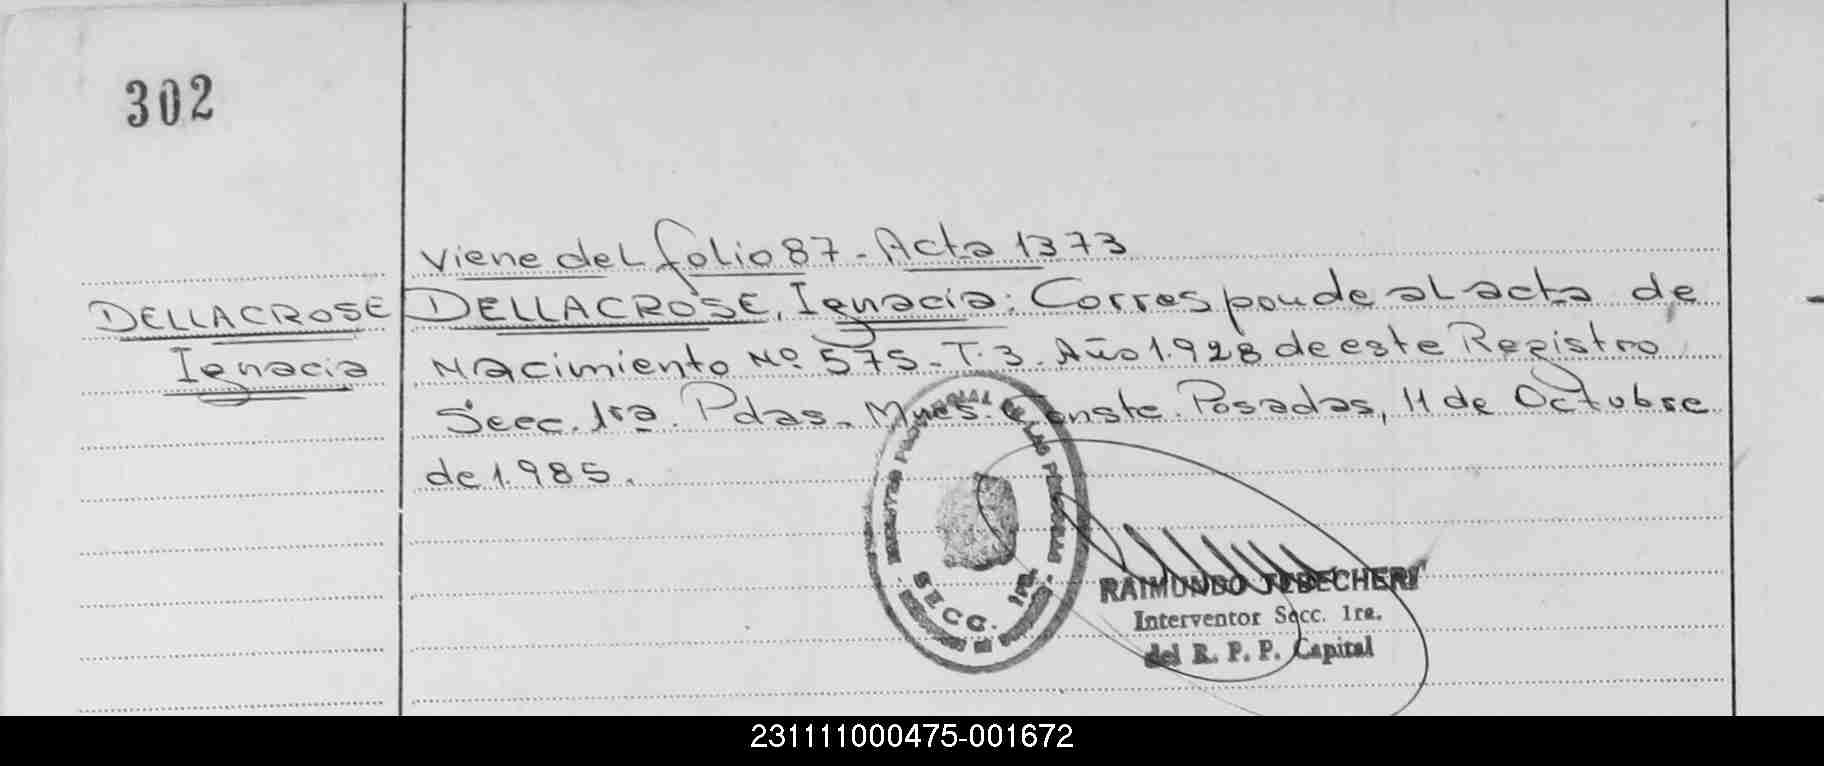 302
viene del folio 87 - Acta 1373
DELLACROSE
Ignacia
DELLACROSE, Ignacia: Corresponde al acta de
Nacimiento Nº 575 - T. 3. Año 1.928 de este Registro
Secc. 1ra. Pdas. Mnes. Conste. Posadas, 11 de Octubre
de 1.985.
PROVINCIAL DE LAS PERSONAS
SECC. 1ra.
RAIMUNDO TEBECHERI
Interventor Secc. 1ra.
del R. P. P. Capital
231111000475-001672